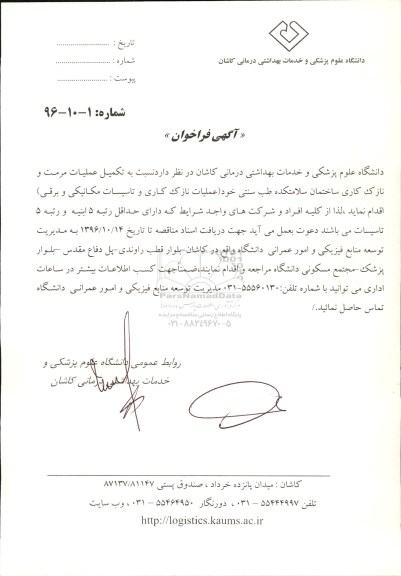 دانشگاه علوم پزشکی و خدمات بهداشتی درمانی کاشان
تاریخ : ........................
شماره : ........................
پیوست : ........................
شماره: ۱-۱۰-۹۶
« آگهی فراخوان »
دانشگاه علوم پزشکی و خدمات بهداشتی درمانی کاشان در نظر داردنسبت به تکمیل عملیات مرمت و
نازک کاری ساختمان سلامتکده طب سنتی خود(عملیات نازک کاری و تاسیسات مکانیکی و برقی)
اقدام نماید ،لذا از کلیه افراد و شرکت های واجد شرایط که دارای حداقل رتبه ۵ ابنیه و رتبه ۵
تاسیسات می باشند دعوت بعمل می آید جهت دریافت اسناد مناقصه تا تاریخ ۱۳۹۶/۱۰/۱۴ به مدیریت
توسعه منابع فیزیکی و امور عمرانی دانشگاه واقع در کاشان-بلوار قطب راوندی-پل دفاع مقدس -بلوار
پزشک-مجتمع مسکونی دانشگاه مراجعه و اقدام نمایند،ضمناًجهت کسب اطلاعات بیشتر در ساعات
اداری می توانید با شماره تلفن:۵۵۵۶۰۱۳۰-۰۳۱ مدیریت توسعه منابع فیزیکی و امور عمرانی دانشگاه
تماس حاصل نمائید./
ParsNamadData
۰۲۱-۸۸۳۴۹۶۷۰-۵
روابط عمومی دانشگاه علوم پزشکی و
خدمات بهداشتی درمانی کاشان
کاشان : میدان پانزده خرداد ، صندوق پستی ۸۷۱۳۷/۸۱۱۴۷
تلفن ۵۵۴۴۴۹۹۷ - ۰۳۱ ، دورنگار ۵۵۴۶۴۹۵۰ - ۰۳۱ ، وب سایت
http://logistics.kaums.ac.ir